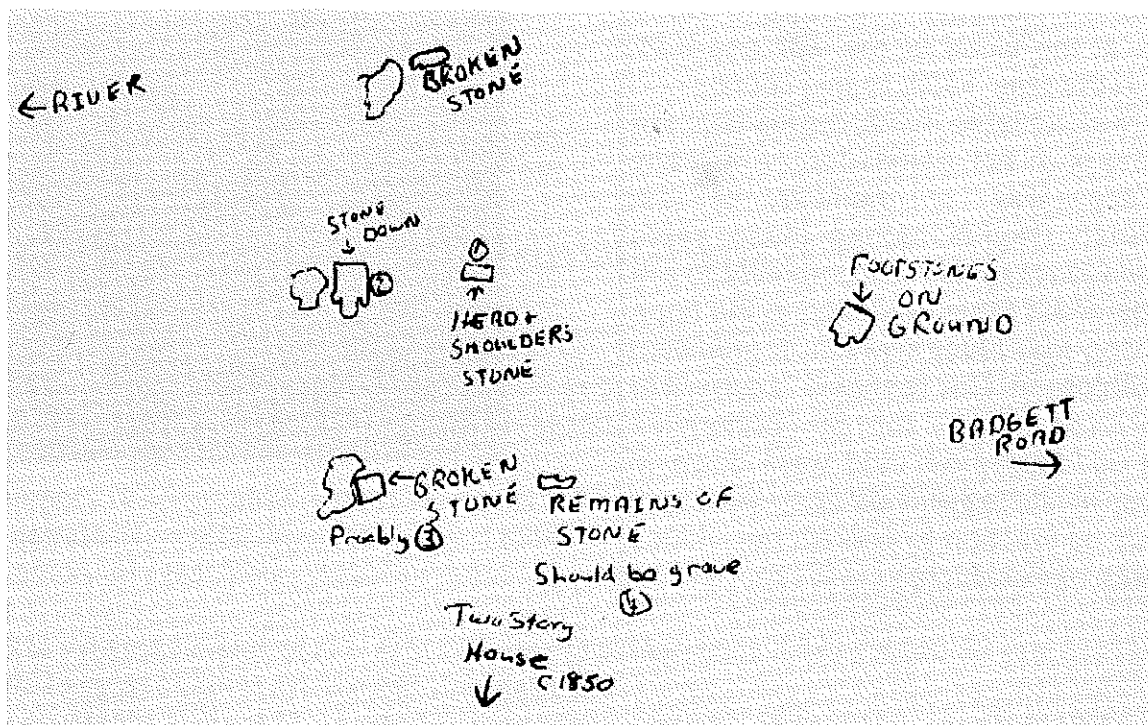 ← RIVER
BROKEN
STONE
STONE
DOWN
①
②
HEAD +
SHOULDERS
STONE
FOOTSTONES
ON
GROUND
BADGETT
ROAD
← BROKEN
STONE
Proebly ③
REMAINS OF
STONE
Should be grave
④
Two Story
House
C 1850